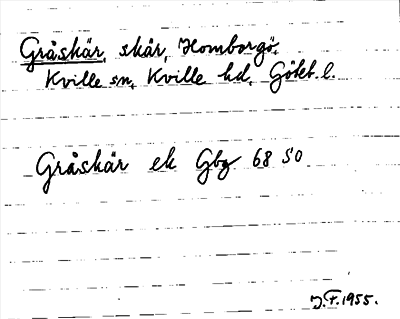 Gråskär, skär, Hamborgö,
Kville sn, Kville hd, Göteb. l.
Gråskär ek Gbg 68 SO
J.F. 1955.